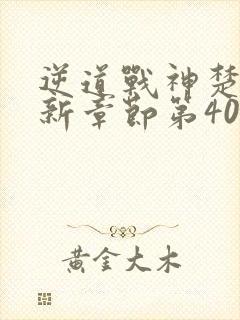 逆道戰神楚
新章節第40
黃金大木